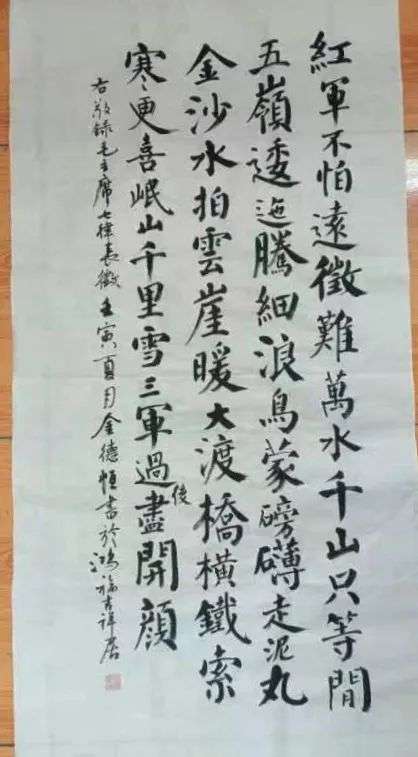 紅軍不怕遠徵難萬水千山只等閒
五嶺逶迤騰細浪烏蒙磅礴走泥丸
金沙水拍雲崖暖大渡橋橫鐵索
寒更喜岷山千里雪三軍過後盡開顏
右敬録毛主席七律長徵壬寅夏月金德恒書於鴻福吉祥居